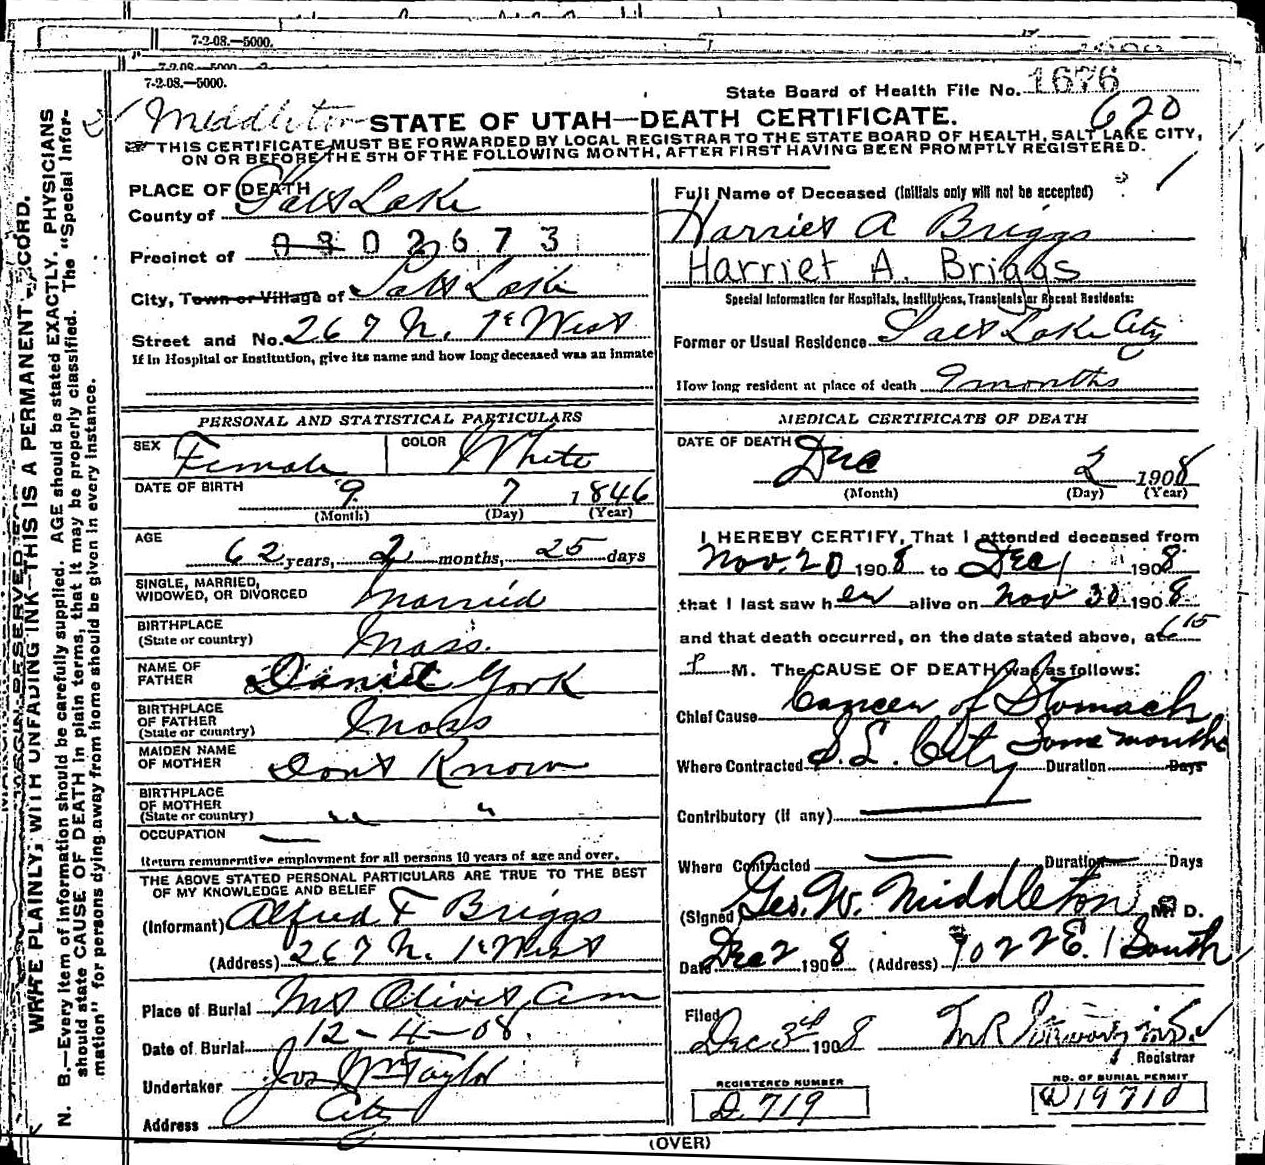 7-2-08.—5000.
7-2-08.—5000
7-2-08.—5000.
State Board of Health File No. 1676
Middleton STATE OF UTAH—DEATH CERTIFICATE. 620
THIS CERTIFICATE MUST BE FORWARDED BY LOCAL REGISTRAR TO THE STATE BOARD OF HEALTH, SALT LAKE CITY,
ON OR BEFORE THE 5TH OF THE FOLLOWING MONTH, AFTER FIRST HAVING BEEN PROMPTLY REGISTERED.
WRITE PLAINLY, WITH UNFADING INK—THIS IS A PERMANENT RECORD.
N. B.—Every item of information should be carefully supplied. AGE should be stated EXACTLY. PHYSICIANS
should state CAUSE OF DEATH in plain terms, that it may be properly classified. The "Special Infor-
mation" for persons dying away from home should be given in every instance.
PLACE OF DEATH
County of Salt Lake
Precinct of 0302673
City, Town or Village of Salt Lake
Street and No. 267 N. 1st West
If in Hospital or Institution, give its name and how long deceased was an inmate
PERSONAL AND STATISTICAL PARTICULARS
SEX Female COLOR White
DATE OF BIRTH 9 7 1846
(Month) (Day) (Year)
AGE 62 years, 2 months, 25 days
SINGLE, MARRIED,
WIDOWED, OR DIVORCED Married
BIRTHPLACE
(State or country) Mass.
NAME OF
FATHER Daniel York
BIRTHPLACE
OF FATHER
(State or country) Mass
MAIDEN NAME
OF MOTHER Dont Know
BIRTHPLACE
OF MOTHER
(State or country) " "
OCCUPATION —
Return remunerative employment for all persons 10 years of age and over.
THE ABOVE STATED PERSONAL PARTICULARS ARE TRUE TO THE BEST
OF MY KNOWLEDGE AND BELIEF
(Informant) Alfred F Briggs
(Address) 267 N. 1st West
Place of Burial Mt Olivet Cem
Date of Burial 12-4-08.
Undertaker Jos Wm Taylor
Address City
Full Name of Deceased (Initials only will not be accepted)
Harriet A Briggs
Harriet A. Briggs
Special Information for Hospitals, Institutions, Transients or Recent Residents:
Former or Usual Residence Salt Lake City
How long resident at place of death 9 months
MEDICAL CERTIFICATE OF DEATH
DATE OF DEATH Dec 2 1908
(Month) (Day) (Year)
I HEREBY CERTIFY, That I attended deceased from
Nov. 20 1908 to Dec 1 1908
that I last saw her alive on Nov 30 1908
and that death occurred, on the date stated above, at 6 15
P M. The CAUSE OF DEATH was as follows:
Chief Cause Cancer of Stomach
Where Contracted S. L. City Duration Some months Days
Contributory (if any) —
Where Contracted — Duration — Days
(Signed) Geo. W. Middleton M. D.
Date Dec 2 1908 (Address) 1022 E. 1 South
Filed
Dec 3rd 1908
Registrar
REGISTERED NUMBER
D 719
NO. OF BURIAL PERMIT
D19710
(OVER)